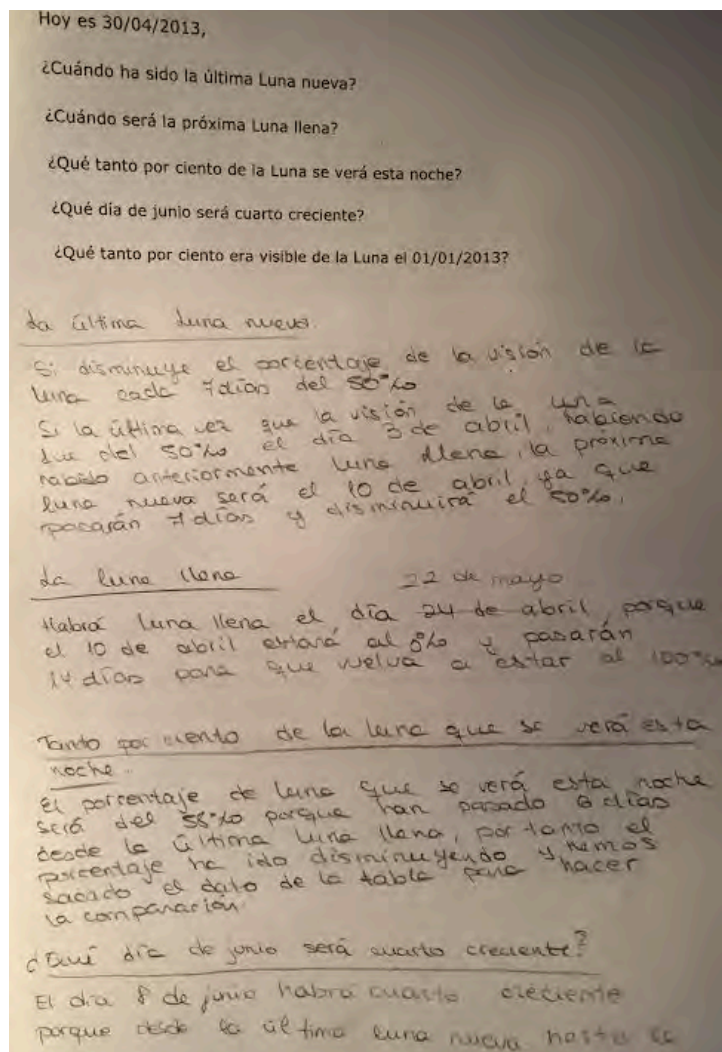 Hoy es 30/04/2013,
¿Cuándo ha sido la última Luna nueva?
¿Cuándo será la próxima Luna llena?
¿Qué tanto por ciento de la Luna se verá esta noche?
¿Qué día de junio será cuarto creciente?
¿Qué tanto por ciento era visible de la Luna el 01/01/2013?
La última Luna nueva.
Si disminuye el porcentaje de la visión de la
luna cada 7 días del 50%
Si la última vez que la visión de la luna
fue del 50% el día 3 de abril, habiendo
habido anteriormente luna llena, la próxima
luna nueva será el 10 de abril, ya que
pasarán 7 días y disminuirá el 50%.
La luna llena 22 de mayo
Habrá luna llena el día 24 de abril, porque
el 10 de abril estará al 0% y pasarán
14 días para que vuelva a estar al 100%
Tanto por ciento de la luna que se verá esta
noche.
El porcentaje de luna que se verá esta noche
será del 55% porque han pasado 6 días
desde la última luna llena, por tanto el
porcentaje ha ido disminuyendo y hemos
sacado el dato de la tabla para hacer
la comparación.
¿Qué día de junio será cuarto creciente?
El día 8 de junio habrá cuarto creciente
porque desde la última luna nueva hasta